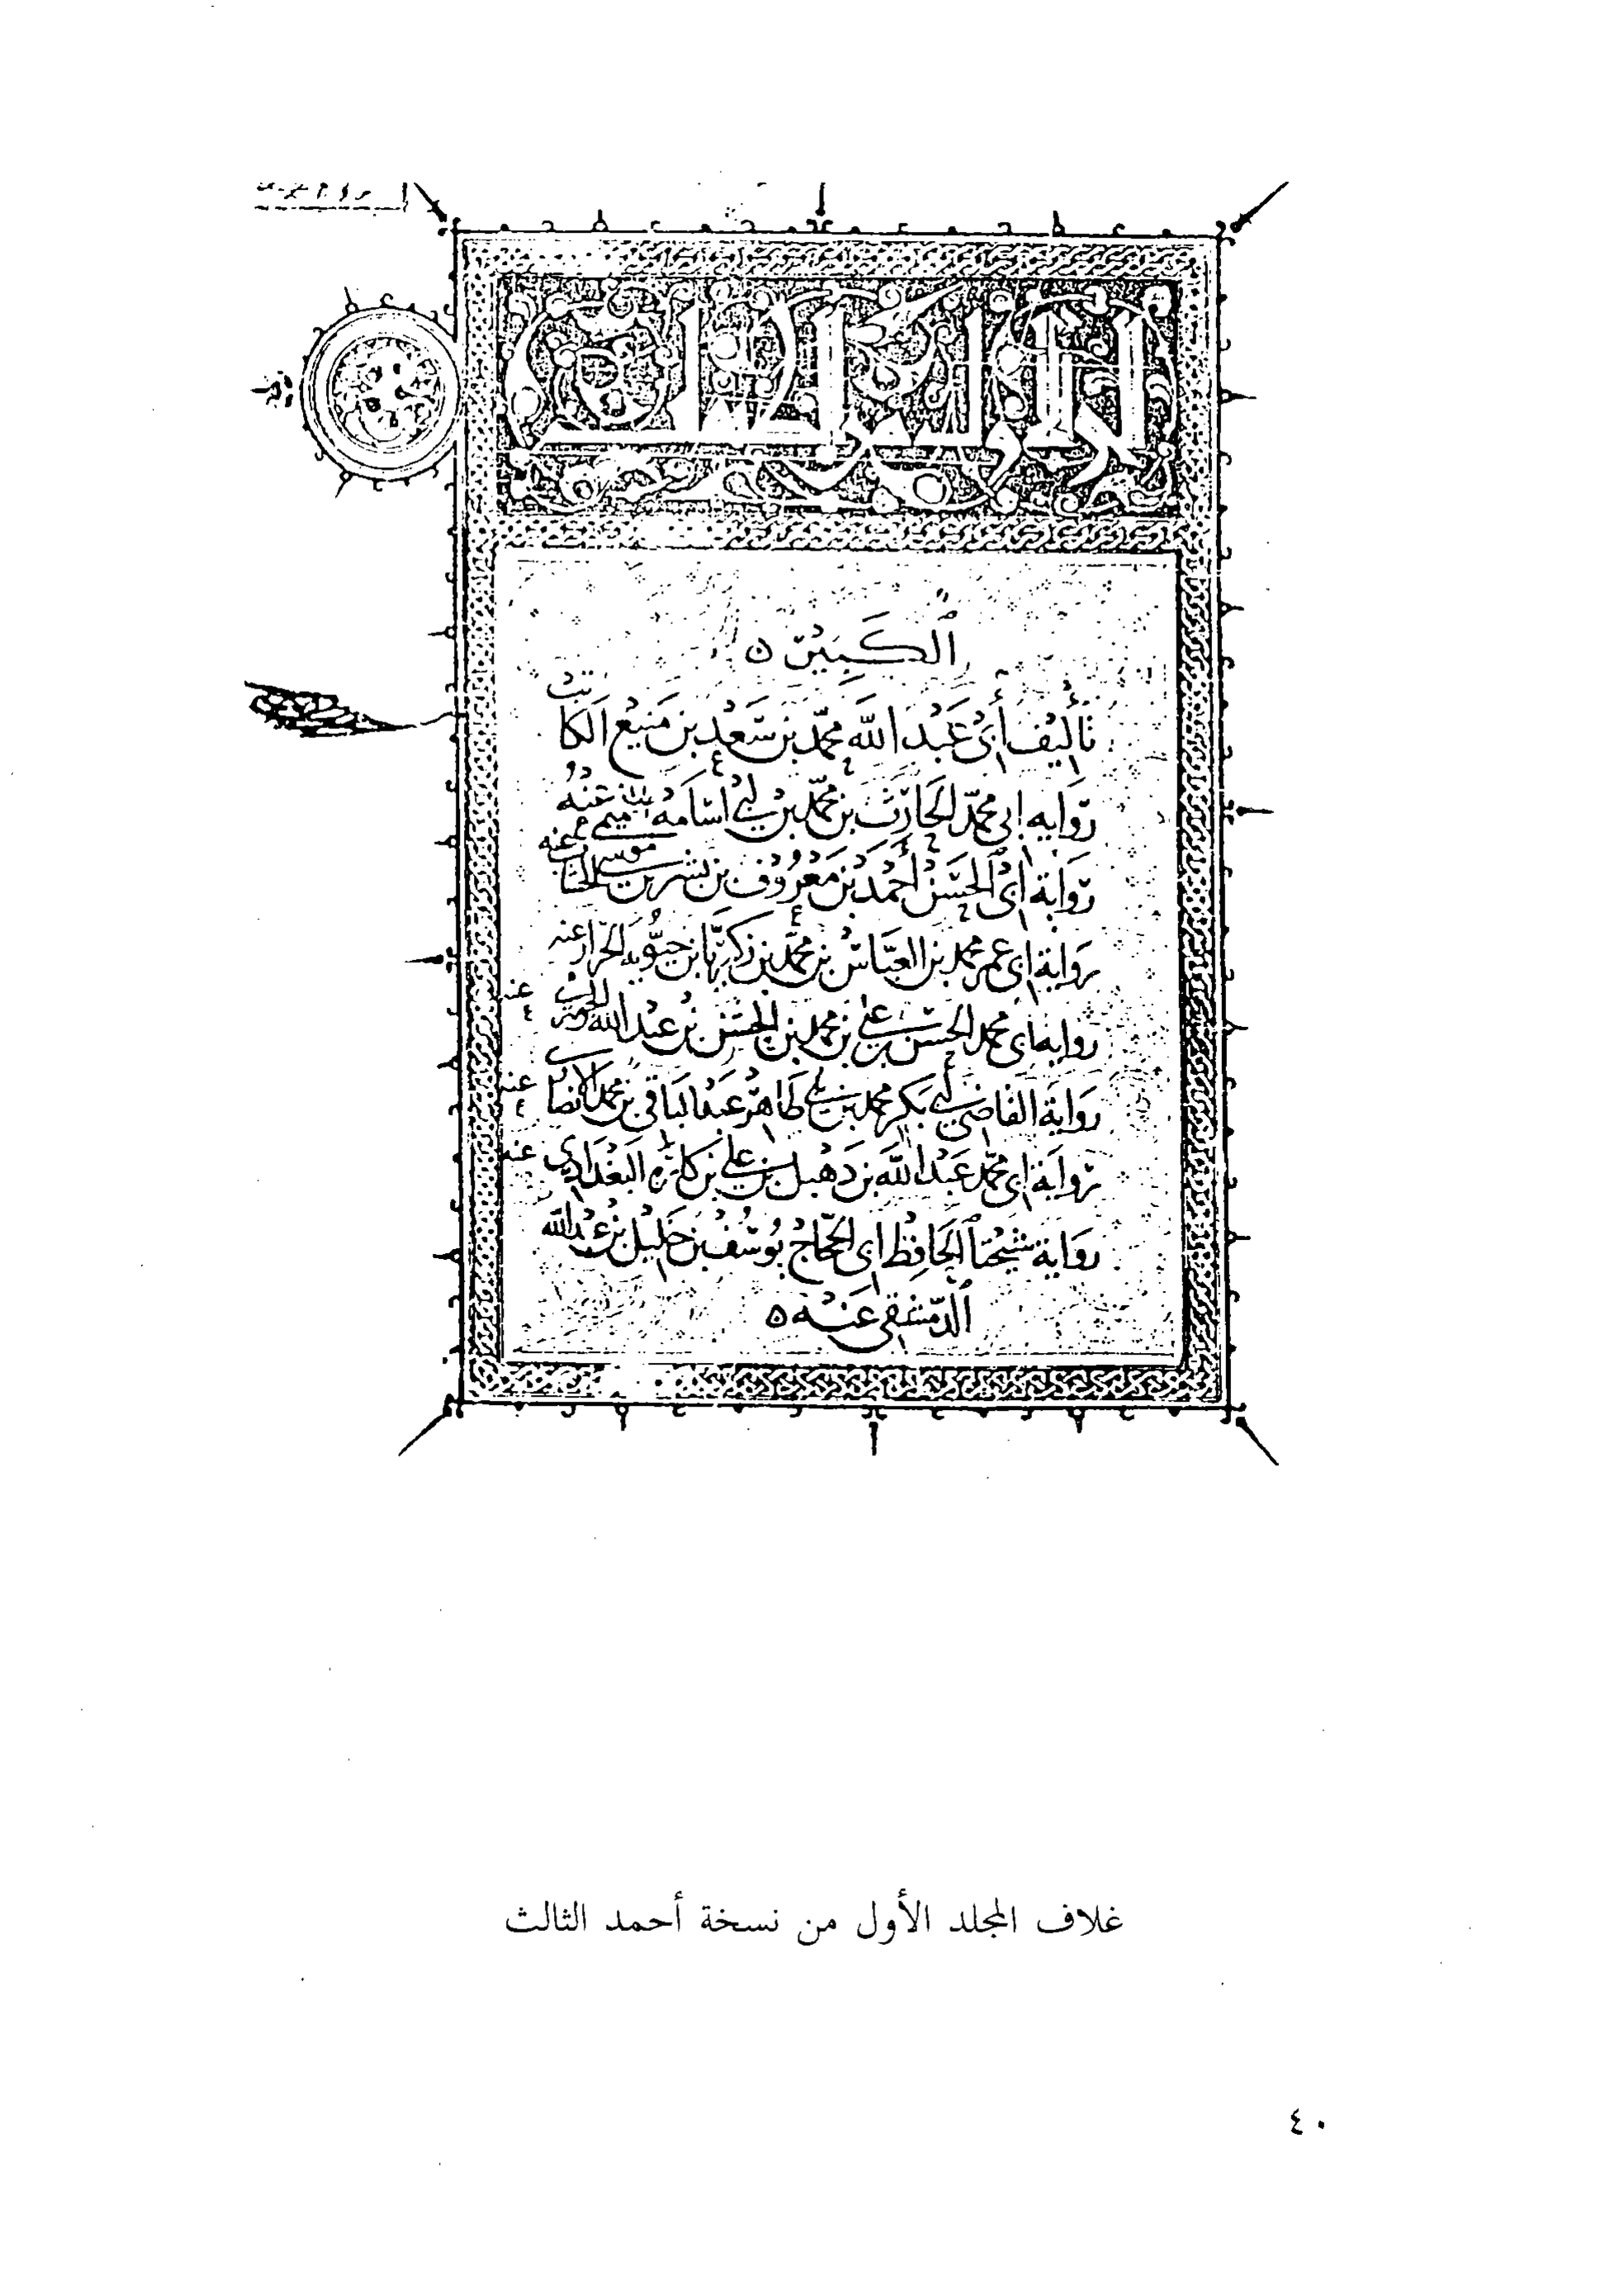 الجزء الأول من الطبقات
الكبير ٥
تأليف أبي عبد الله محمد بن سعد بن منيع الكاتب
رواية ابي محمد الحارث بن محمد بن أبي أسامة التميمي عنه
رواية أبي الحسن أحمد بن معروف بن بشر بن موسى الخشاب عنه
رواية أبي عمر محمد بن العباس بن محمد بن زكريا بن حيويه الخزاز عنه
رواية أبي محمد الحسن بن علي بن محمد بن الحسن بن عبد الله الجوهري عنه
رواية القاضي أبي بكر محمد بن عبد الباقي بن محمد الأنصاري عنه
رواية أبي محمد عبد الله بن دهبل بن علي بن كاره البغدادي عنه
رواية شيخنا الحافظ أبي الحجاج يوسف بن خليل بن عبد الله
الدمشقي عنه ٥
غلاف المجلد الأول من نسخة أحمد الثالث
٤٠